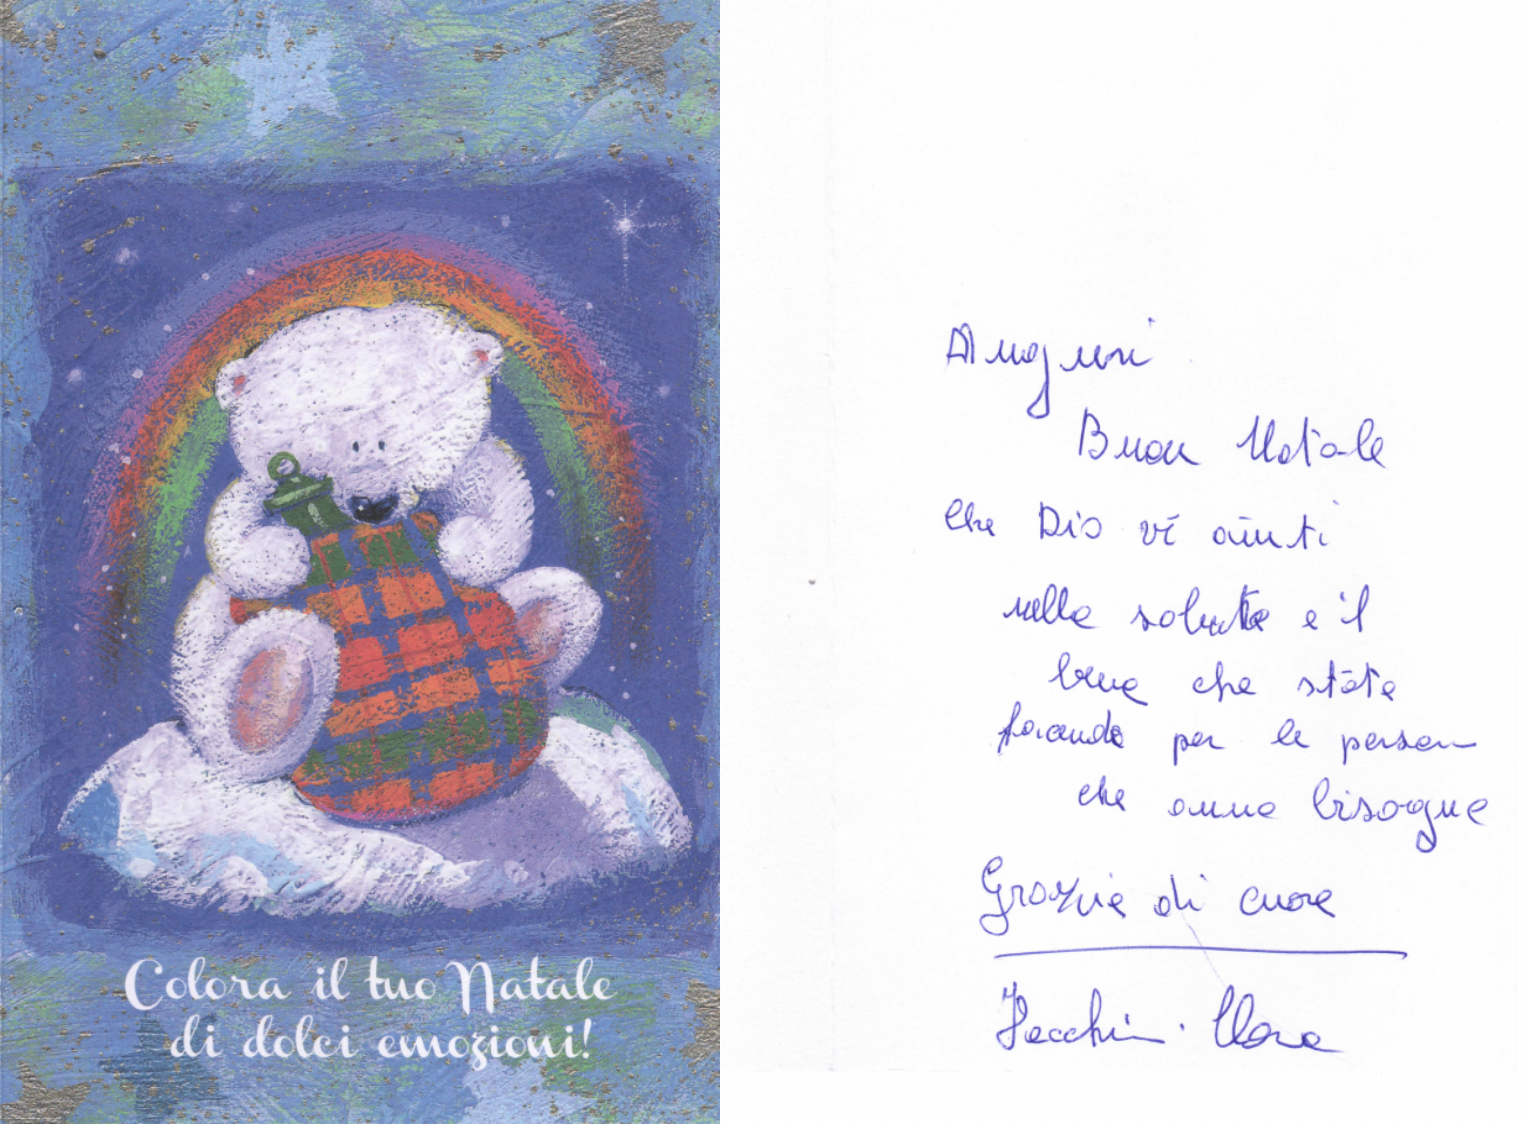 Colora il tuo Natale
di dolci emozioni!
Auguri
Buon Natale
Che Dio vi aiuti
nella salute e il
bene che state
facendo per le person
che anno bisogne
Grazie di cuore